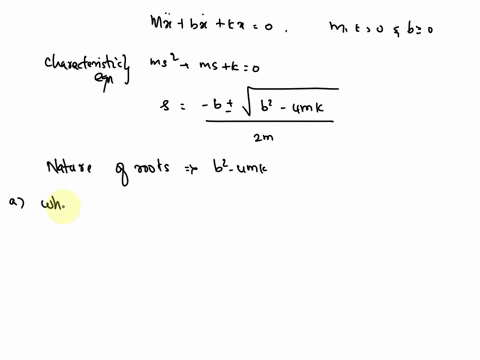 Mẍ + bẋ + kx = 0 . m, k > 0 & b ≥ 0
Characteristic eqn } ms² + ms + k = 0
s = -b ± √(b² - 4mk) / 2m
Nature of roots ⇒ b² - 4mk
a) wh.